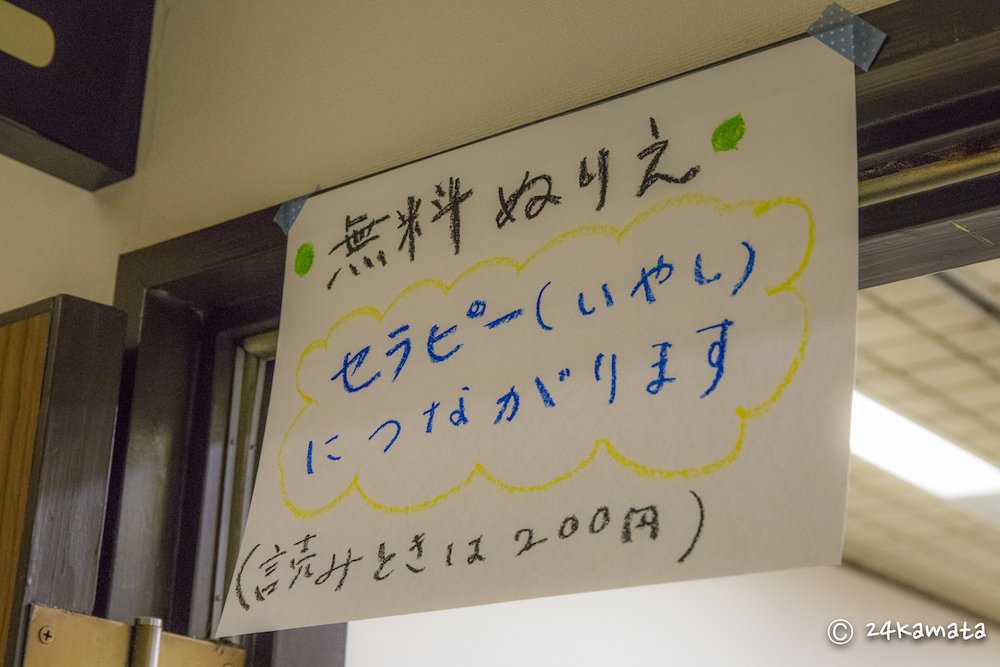 無料ぬりえ
セラピー(いやし)
につながります
(読みときは200円)
© 24kamata